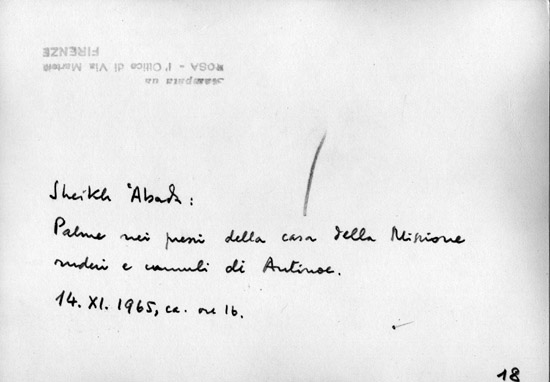 Stampata da
ROSA - l'Ottico di Via Martelli
FIRENZE
Sheikh 'Abada:
Palme nei pressi della casa della Missione
ruderi e cumuli di Antinoe.
14. XI. 1965, ca. ore 16.
18